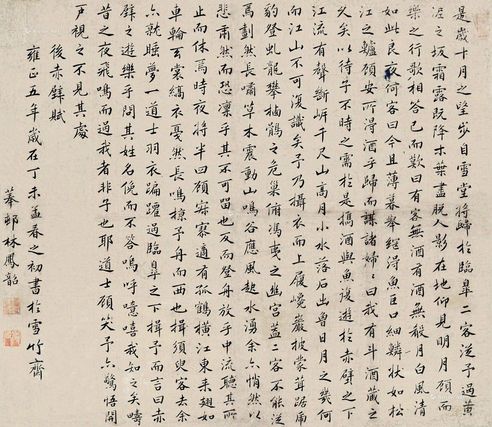 是歲十月之望步自雪堂將歸於臨皋二客從予過黃
泥之坂霜露既降木葉盡脫人影在地仰見明月顧而
樂之行歌相答已而歎曰有客無酒有酒無殽月白風清
如此良夜何客曰今且薄暮舉網得魚巨口細鱗狀如松
江之鱸顧安所得酒乎歸而謀諸婦々曰我有斗酒藏之
久矣以待子不時之需於是攜酒與魚復遊於赤壁之下
江流有聲斷岸千尺山高月小水落石出曾日月之幾何
而江山不可復識矣予乃攝衣而上履巉巖披蒙茸踞虎
豹登虬龍攀栖鶻之危巢俯馮夷之幽宮蓋二客不能從
焉劃然長嘯草木震動山鳴谷應風起水湧余亦悄然以
悲肅然而恐凜乎其不可留也反而登舟放乎中流聽其所
止而休焉時夜將半四顧寂寥適有孤鶴橫江東來翅如
車輪玄裳縞衣戛然長鳴掠予舟而西也須臾客去余
亦就睡夢一道士羽衣蹁躚過臨皋之下揖予而言曰赤
壁之遊樂乎問其姓名俛而不答嗚呼噫嘻我知之矣疇
昔之夜飛鳴而過我者非子也耶道士顧笑予亦驚悟開
戶視之不見其處
後赤壁賦
雍正五年歲在丁未孟春之初書於雪竹齋
林鳳韶